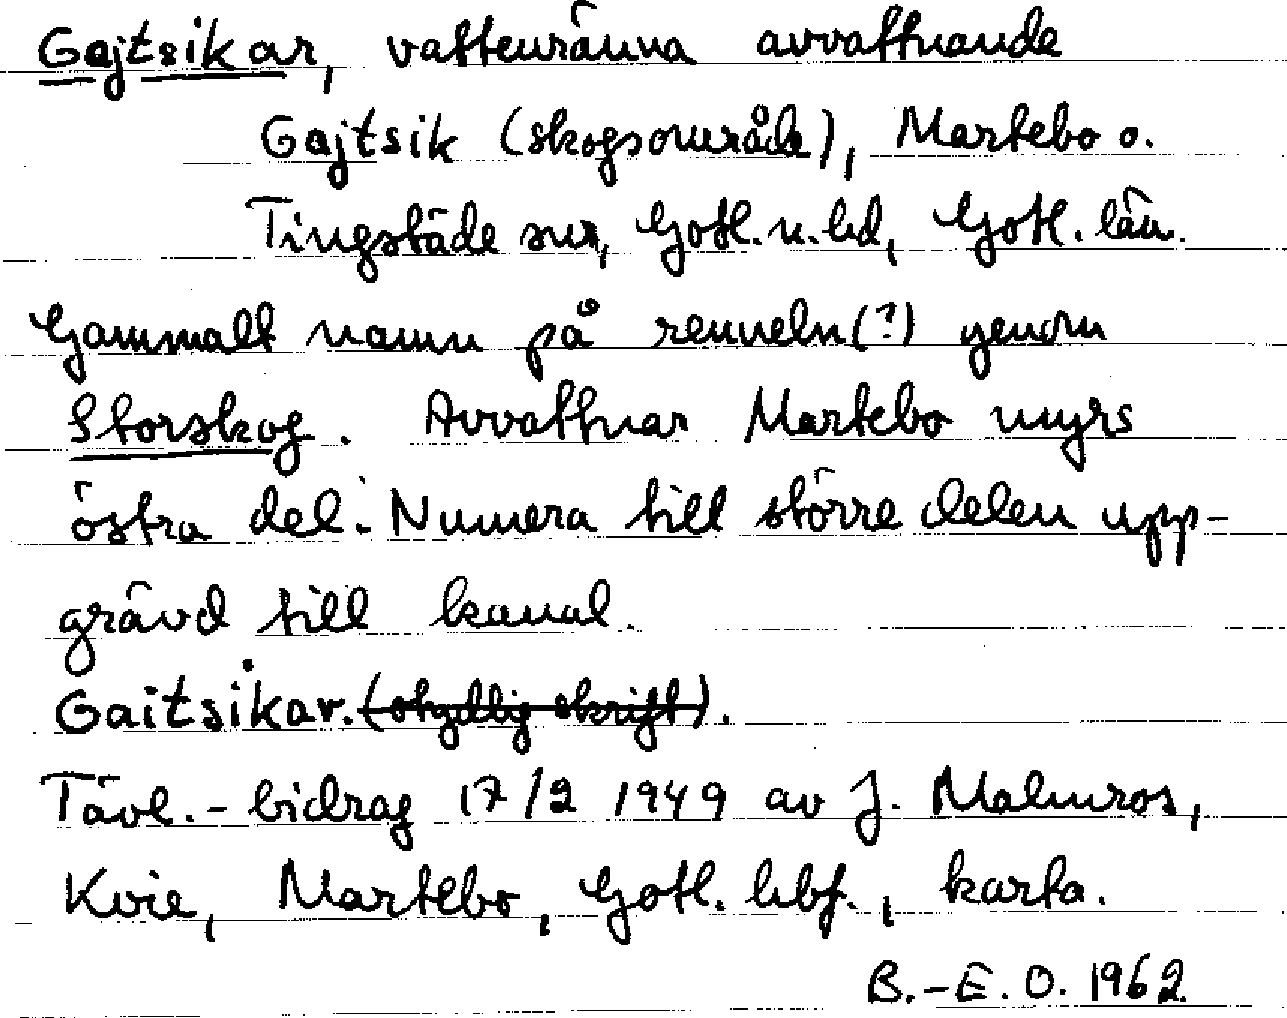 Gajtsikar, vattenränna avvattnande
Gajtsik (skogsområde), Martebo o.
Tingstäde snr, Gotl. n. hd, Gotl. län.
Gammalt namn på renneln (?) genom
Storskog. Avvattnar Martebo myrs
östra del. Numera till större delen upp-
grävd till kanal.
Gaitsikar. (otydlig skrift).
Tävl.-bidrag 17/2 1949 av J. Malmros,
Kvie, Martebo, Gotl. hbf., karta.
B.-E. O. 1962